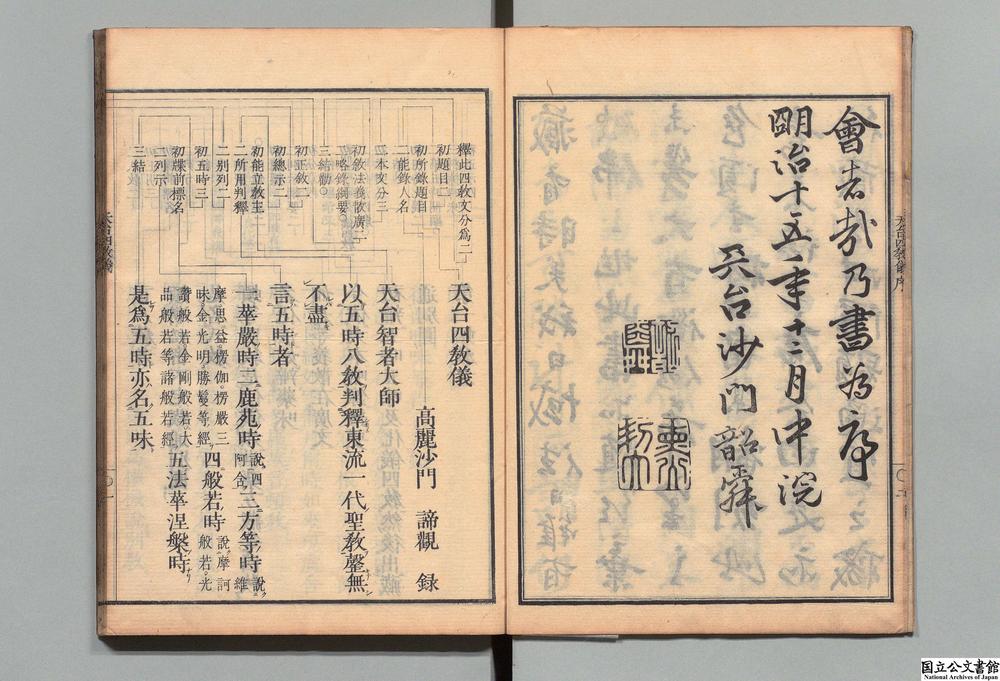 會者哉乃書為序
明治十五年十二月中浣
天台沙門韶舜
天台四教儀序
釋此四教文分爲二
初題目二
初所錄題目
二能錄人名
二本文分三
初敘法義散廣二
初略錄綱要
三結勸
初正敘二
初總示二
初能立教主
二所用判釋
二別列二
初五時三
初牒前標名
二列示
三結
天台四教儀
高麗沙門 諦觀 錄
天台智者大師
以五時八教判釋東流一代聖教罄無
不盡
言五時者
一華嚴時二鹿苑時說四阿含三方等時說維
摩思益楞伽楞嚴三昧金光明勝鬘等經四般若時說摩訶般若光
讚般若金剛般若大品般若等諸般若經五法華涅槃時
是爲五時亦名五味
天台四教儀
国立公文書館
National Archives of Japan